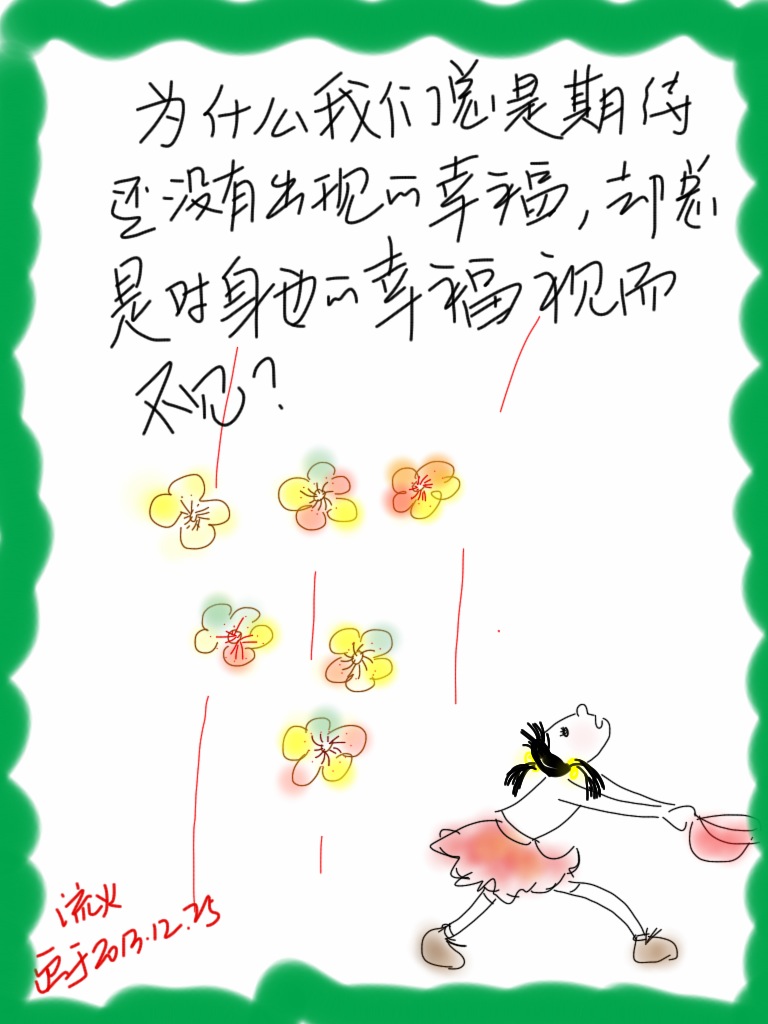 为什么我们总是期待
还没有出现的幸福,却总
是对身边的幸福视而
不见?
流火
画于2013.12.25